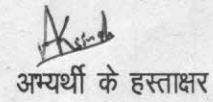 अभ्यर्थी के हस्ताक्षर